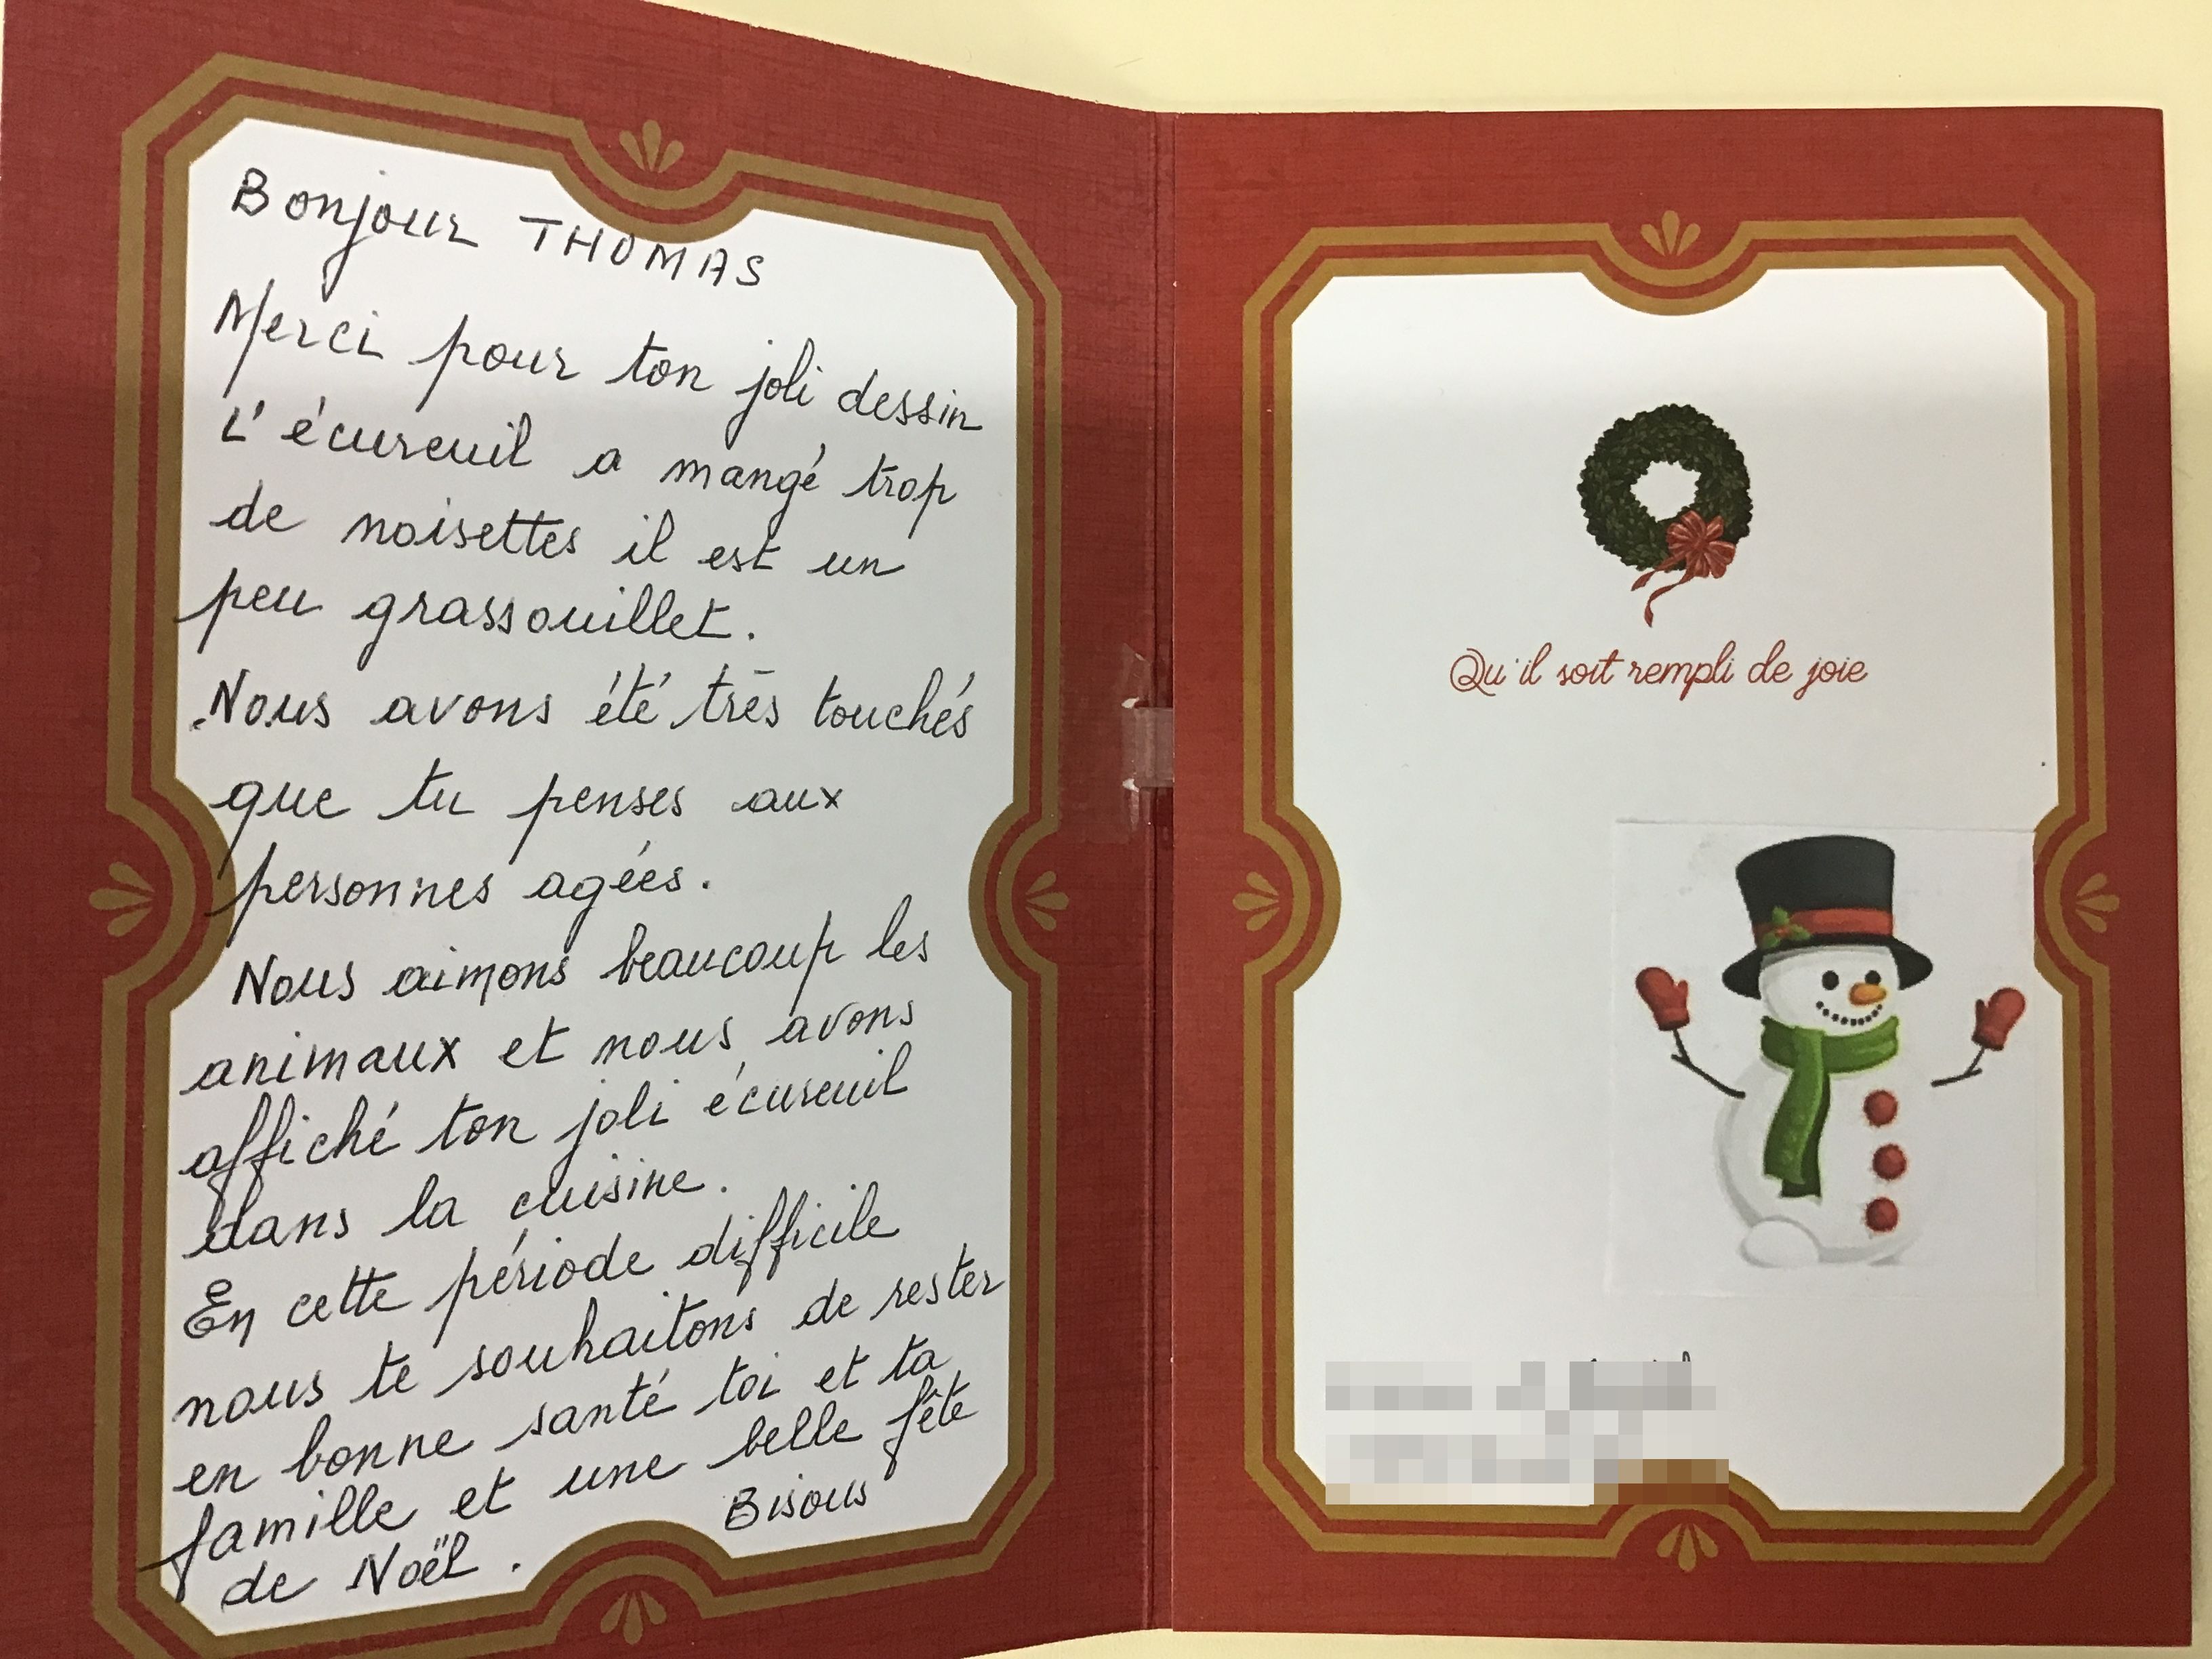 Bonjour THOMAS
Merci pour ton joli dessin
L'écureuil a mangé trop
de noisettes il est un
peu grassouillet.
Nous avons été très touchés
que tu penses aux
personnes agées.
Nous aimons beaucoup les
animaux et nous avons
affiché ton joli écureuil
dans la cuisine.
En cette période difficile
nous te souhaitons de rester
en bonne santé toi et ta
famille et une belle fête
de Noël.
Bisous
Qu'il soit rempli de joie